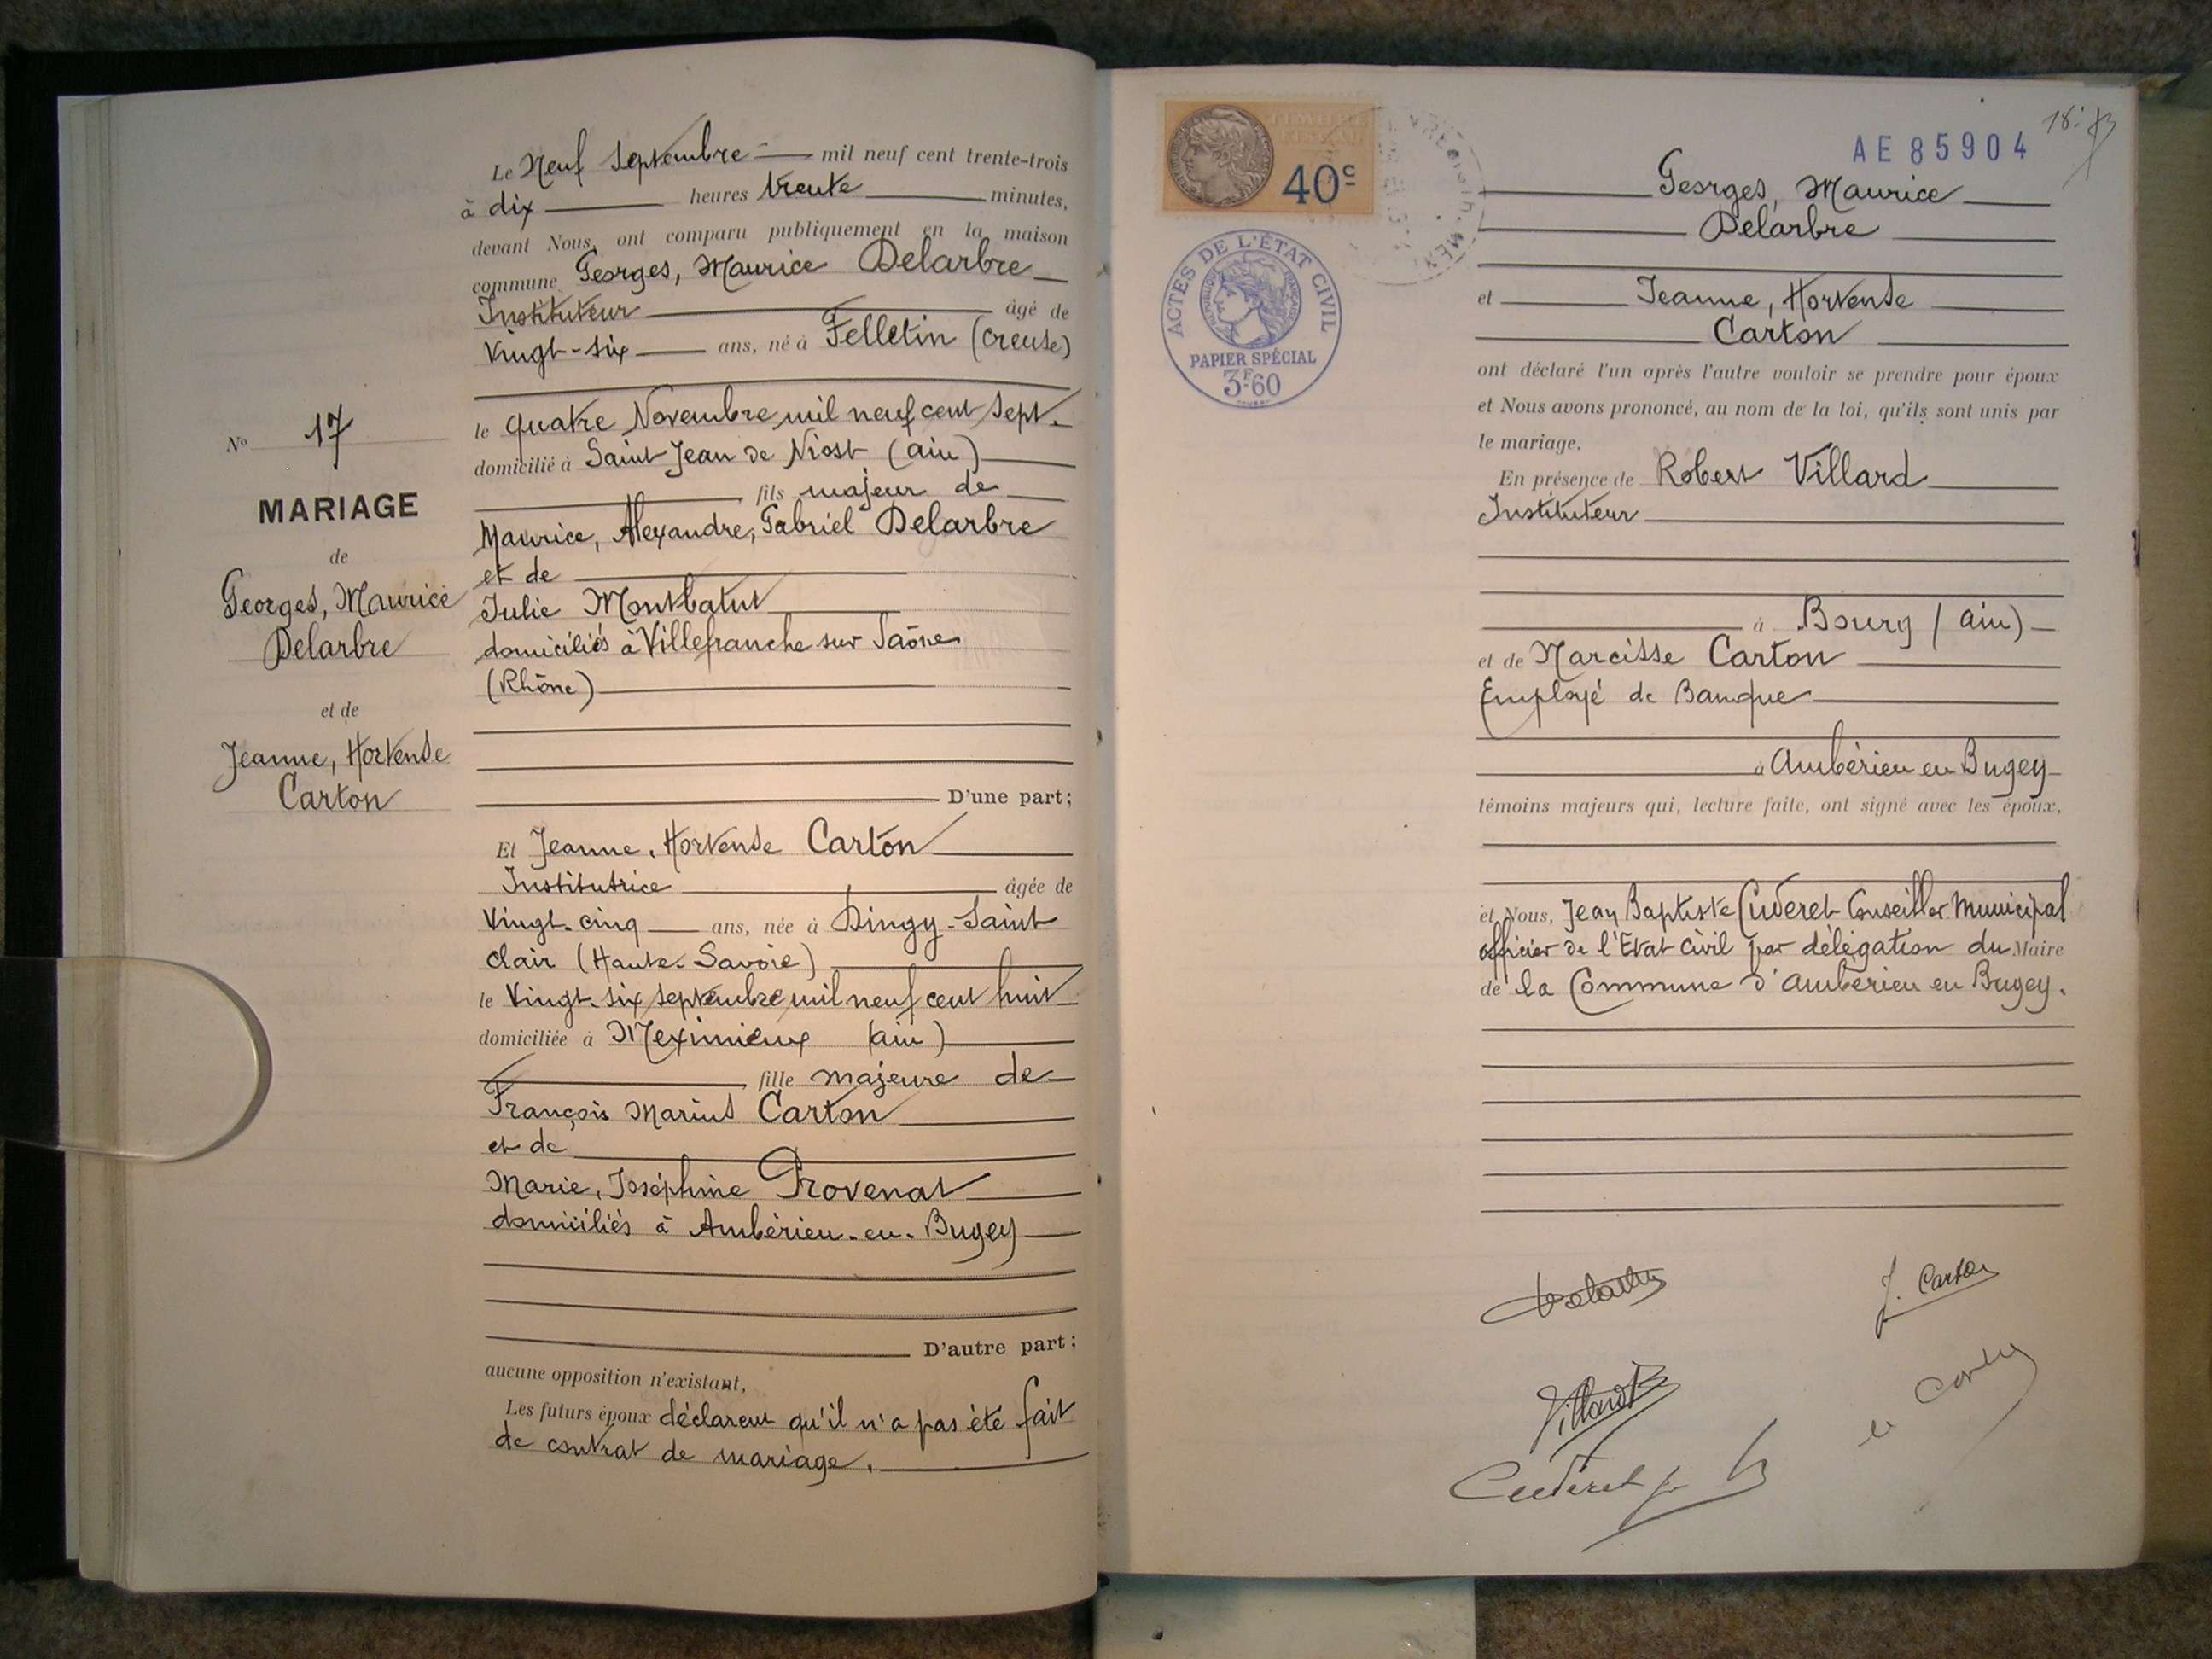 Le Neuf Septembre mil neuf cent trente-trois
à dix heures trente minutes,
devant Nous, ont comparu publiquement en la maison
commune Georges, Maurice Delarbre
Instituteur âgé de
Vingt-six ans, né à Felletin (Creuse)
le quatre Novembre mil neuf cent sept.
domicilié à Saint Jean de Niost (ain)
fils majeur de
Maurice, Alexandre, Gabriel Delarbre
et de
Julie Montbatut
domiciliés à Villefranche sur Saône
(Rhône)
D'une part;
Et Jeanne, Hortense Carton
Institutrice âgée de
Vingt-cinq ans, née à Dingy-Saint
Clair (Haute-Savoie)
le Vingt-six septembre mil neuf cent huit
domiciliée à Meximieux (ain)
fille majeure de
François Marius Carton
et de
Marie, Joséphine Provenat
domiciliés à Ambérieu-en-Bugey
D'autre part;
aucune opposition n'existant,
Les futurs époux déclarent qu'il n'a pas été fait
de contrat de mariage.
No 17
MARIAGE
de
Georges, Maurice
Delarbre
et de
Jeanne, Hortense
Carton
TIMBRE
FISCAL
40c
ACTES DE L'ÉTAT CIVIL
RÉPUBLIQUE FRANÇAISE
PAPIER SPÉCIAL
3F60
AE 85904
Georges, Maurice
Delarbre
et Jeanne, Hortense
Carton
ont déclaré l'un après l'autre vouloir se prendre pour époux
et Nous avons prononcé, au nom de la loi, qu'ils sont unis par
le mariage.
En présence de Robert Villard
Instituteur
à Bourg (ain)
et de Narcisse Carton
Employé de Banque
à Ambérieu en Bugey
témoins majeurs qui, lecture faite, ont signé avec les époux,
et Nous, Jean Baptiste Cuderet Conseiller Municipal
officier de l'Etat Civil par délégation du Maire
de la Commune d'Ambérieu en Bugey.
Delarbre
J. Carton
Villard
Carton
Cuderet